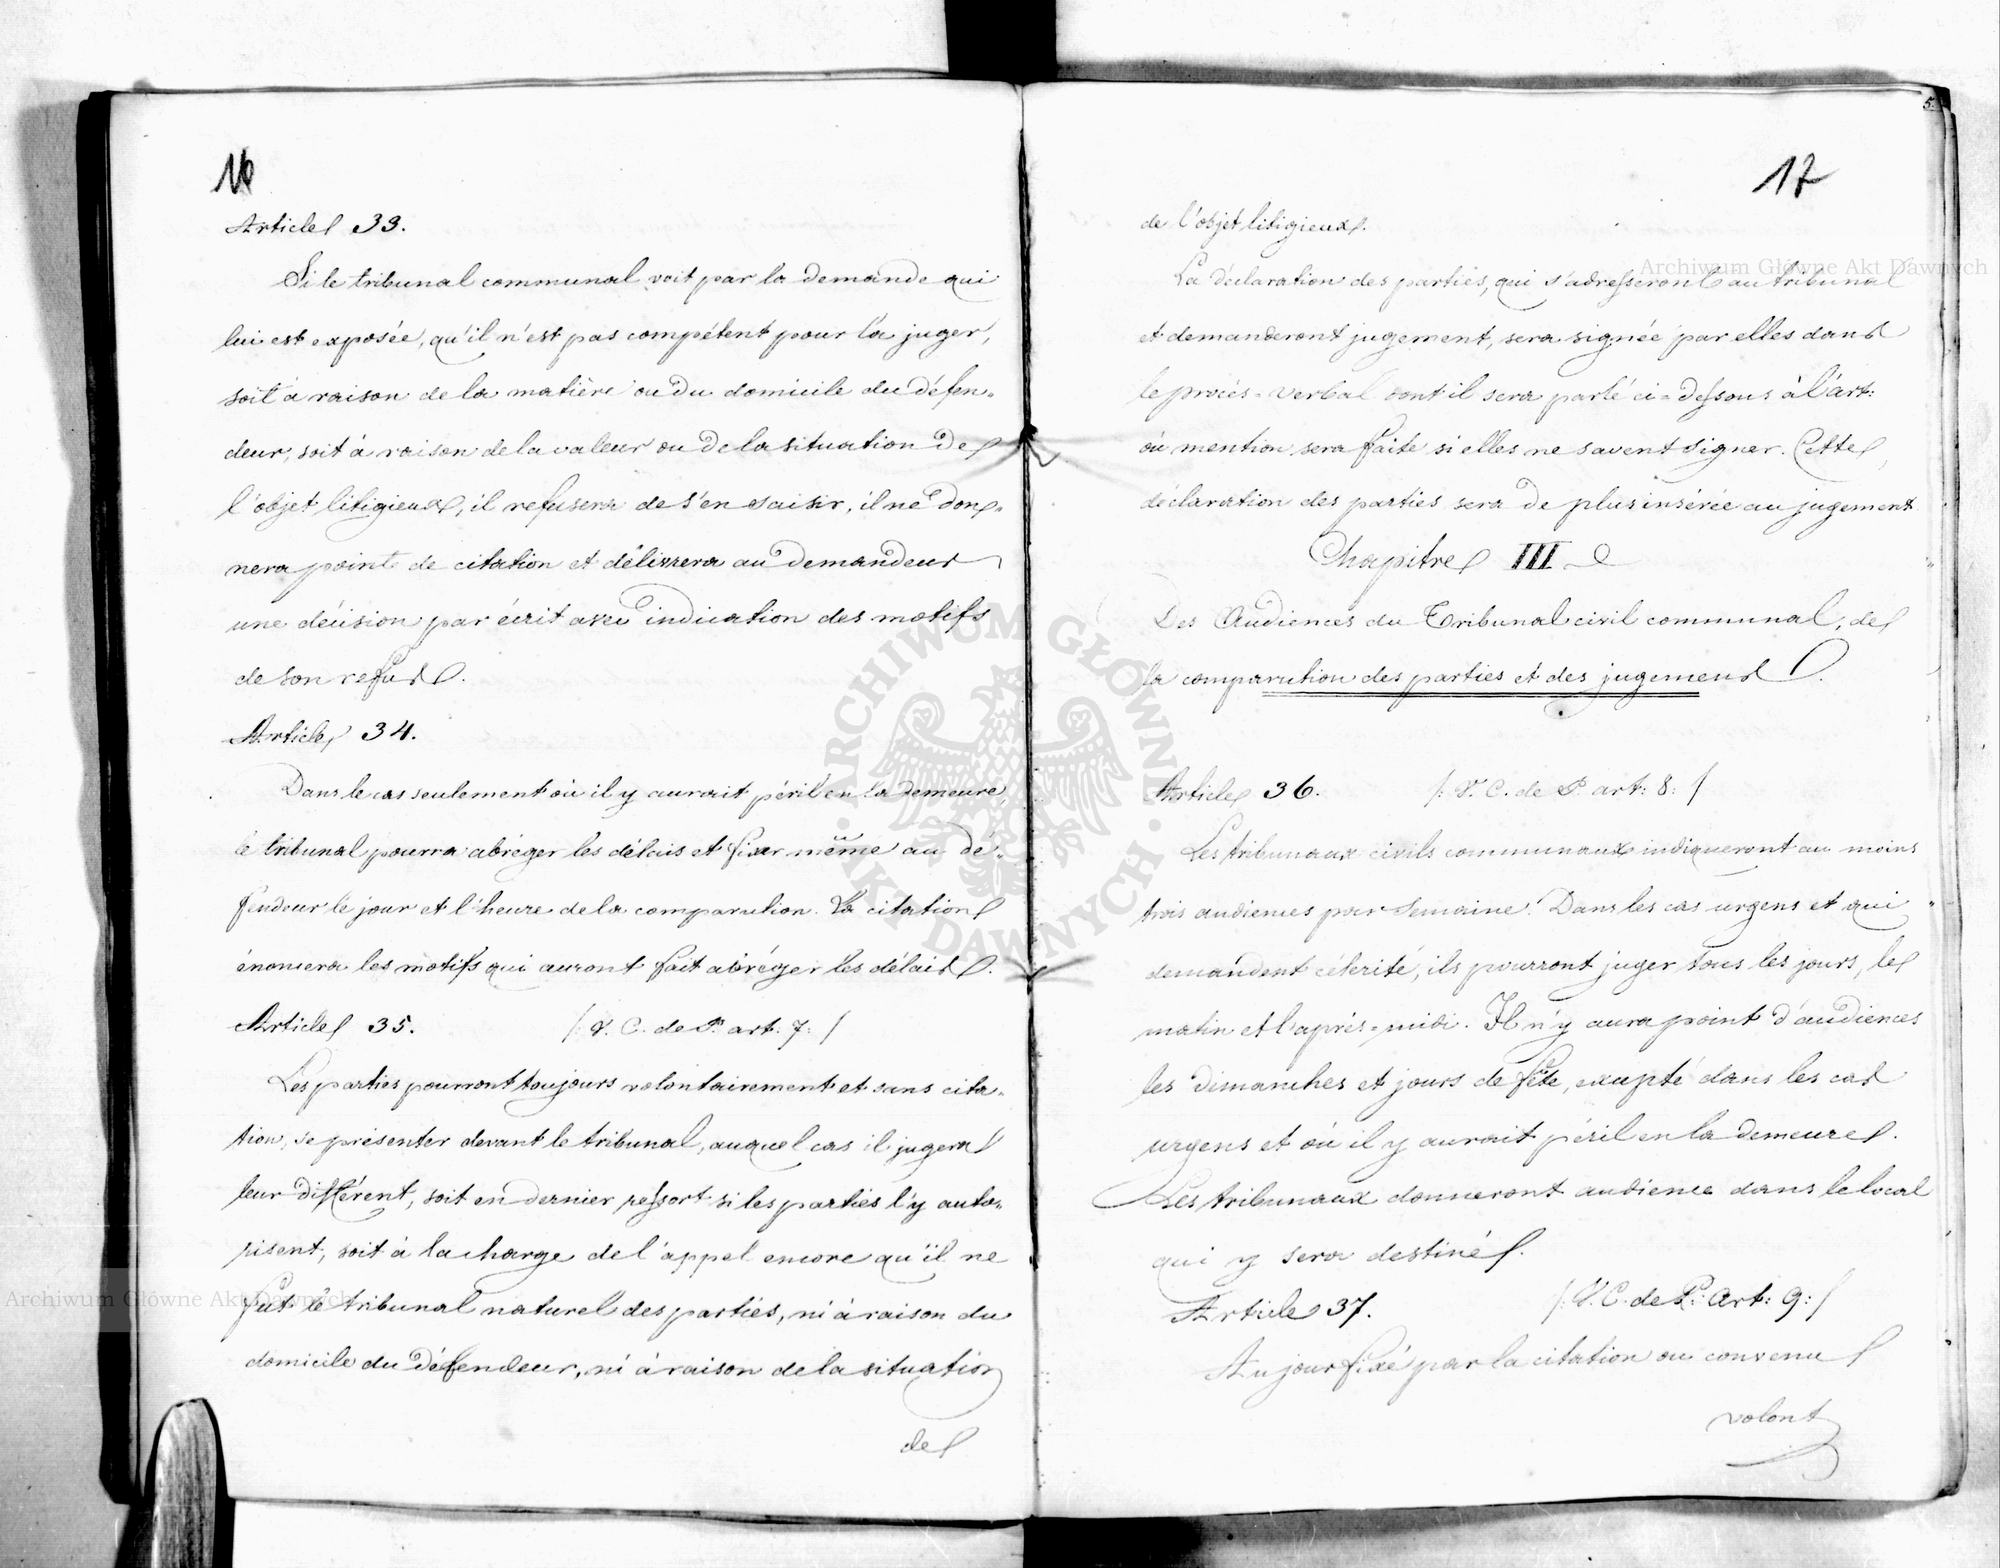 16
Article 33.
Si le tribunal communal voit par la demande qui
lui est exposée, qu'il n'est pas compétent pour la juger,
soit à raison de la matière ou du domicile du défen-
deur, soit à raison de la valeur ou de la situation de
l'objet litigieux, il refusera de s'en saisir, il ne don-
nera point de citation et délivrera au demandeur
une décision par écrit avec indication des motifs
de son refus.
Article 34.
Dans le cas seulement où il y aurait péril en la demeure,
le tribunal pourra abréger les délais et fixer même au dé-
fendeur le jour et l'heure de la comparution. La citation
énoncera les motifs qui auront fait abréger les délais.
Article 35. /: V. C. de P. art: 7: /
Les parties pourront toujours volontairement et sans cita-
tion, se présenter devant le tribunal, auquel cas il jugera
leur différent, soit en dernier ressort si les parties l'y auto-
risent, soit à la charge de l'appel encore qu'il ne
fut le tribunal naturel des parties, ni à raison du
domicile du défendeur, ni à raison de la situation
de
5.
17
de l'objet litigieux.
La déclaration des parties, qui s'adresseront au tribunal
et demanderont jugement, sera signée par elles dans
le procès-verbal dont il sera parlé ci-dessous à l'art:
où mention sera faite si elles ne savent signer. Cette
déclaration des parties sera de plus insérée au jugement
Chapitre III
Des Audiences du Tribunal civil communal, de
la comparution des parties et des jugemens.
Article 36. /: V. C. de P. art: 8: /
Les tribunaux civils communaux indiqueront au moins
trois audiences par semaine. Dans les cas urgens et qui
demandent célérité, ils pourront juger tous les jours, le
matin et l'après-midi. Il n'y aura point d'audiences
les dimanches et jours de fête, excepté dans les cas
urgens et où il y aurait péril en la demeure.
Les tribunaux donneront audience dans le local
qui y sera destiné.
Article 37. /: V. C. de P: Art: 9: /
Au jour fixé par la citation ou convenu
volont
Archiwum Główne Akt Dawnych
Archiwum Główne Akt Dawnych
ARCHIWUM GŁÓWNE · AKT DAWNYCH ·